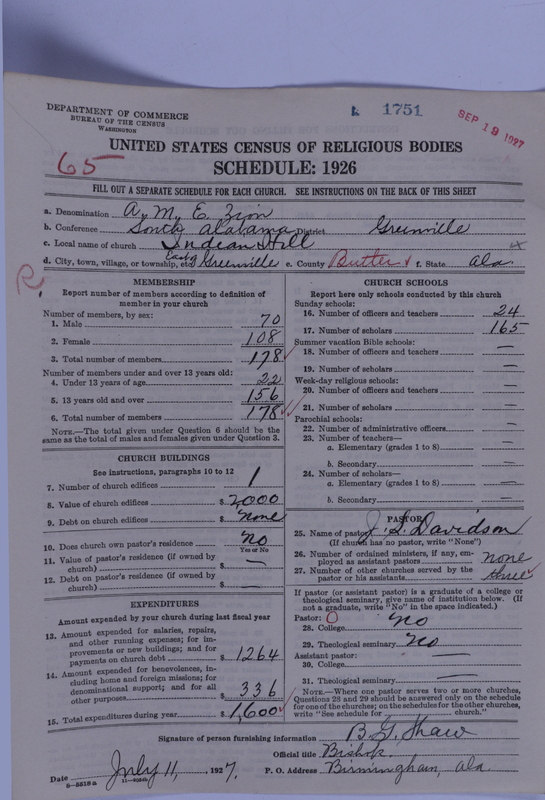 DEPARTMENT OF COMMERCE
BUREAU OF THE CENSUS
WASHINGTON
1751
SEP 19 1927
65
UNITED STATES CENSUS OF RELIGIOUS BODIES
SCHEDULE: 1926
FILL OUT A SEPARATE SCHEDULE FOR EACH CHURCH. SEE INSTRUCTIONS ON THE BACK OF THIS SHEET
a. Denomination A. M. E. Zion
b. Conference South Alabama District Greenville
c. Local name of church Indian Hill
d. City, town, village, or township, etc. East of Greenville e. County Butler f. State Ala.
R.
MEMBERSHIP
Report number of members according to definition of member in your church
Number of members, by sex:
1. Male 70
2. Female 108
3. Total number of members 178
Number of members under and over 13 years old:
4. Under 13 years of age 22
5. 13 years old and over 156
6. Total number of members 178
NOTE.—The total given under Question 6 should be the same as the total of males and females given under Question 3.
CHURCH BUILDINGS
See instructions, paragraphs 10 to 12
7. Number of church edifices 1
8. Value of church edifices $ 2,000
9. Debt on church edifices $ none
10. Does church own pastor's residence no
Yes or No
11. Value of pastor's residence (if owned by church) $ —
12. Debt on pastor's residence (if owned by church) $ —
EXPENDITURES
Amount expended by your church during last fiscal year
13. Amount expended for salaries, repairs, and other running expenses; for improvements or new buildings; and for payments on church debt $ 1264
14. Amount expended for benevolences, including home and foreign missions; for denominational support; and for all other purposes $ 336
15. Total expenditures during year $ 1,600
CHURCH SCHOOLS
Report here only schools conducted by this church
Sunday schools:
16. Number of officers and teachers 24
17. Number of scholars 165
Summer vacation Bible schools:
18. Number of officers and teachers —
19. Number of scholars —
Week-day religious schools:
20. Number of officers and teachers —
21. Number of scholars —
Parochial schools:
22. Number of administrative officers —
23. Number of teachers—
a. Elementary (grades 1 to 8) —
b. Secondary —
24. Number of scholars—
a. Elementary (grades 1 to 8) —
b. Secondary —
PASTOR
25. Name of pastor J. S. Davidson
(If church has no pastor, write "None")
26. Number of ordained ministers, if any, employed as assistant pastors none
27. Number of other churches served by the pastor or his assistants three
If pastor (or assistant pastor) is a graduate of a college or theological seminary, give name of institution below. (If not a graduate, write "No" in the space indicated.)
Pastor: 0
28. College no
29. Theological seminary no
Assistant pastor: —
30. College —
31. Theological seminary —
NOTE.—Where one pastor serves two or more churches, Questions 28 and 29 should be answered only on the schedule for one of the churches; on the schedules for the other churches, write "See schedule for church."
Signature of person furnishing information B. G. Shaw
Official title Bishop
Date July 11, 1927. P. O. Address Birmingham, Ala.